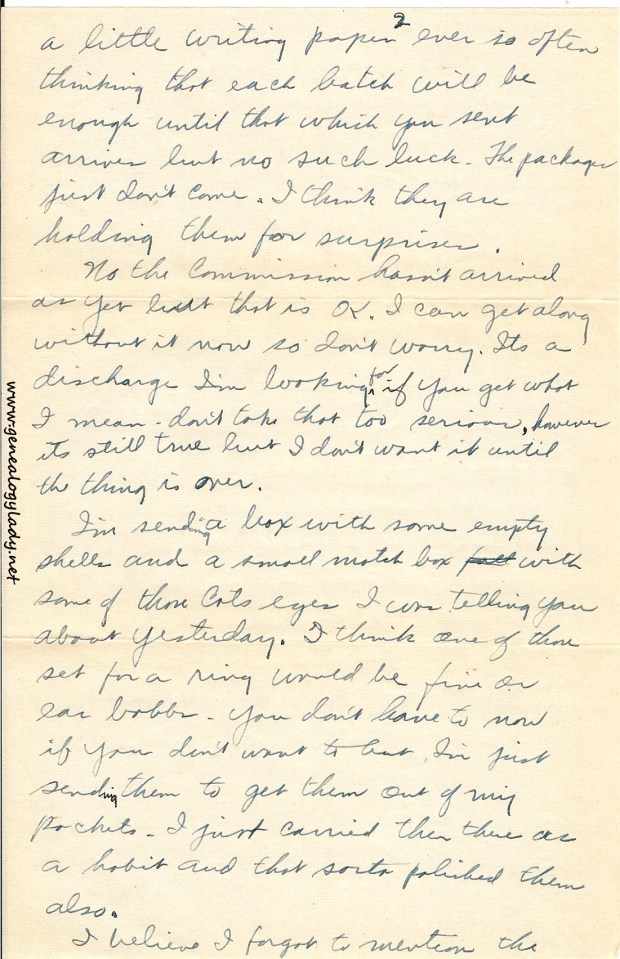 2
a little writing paper ever so often
thinking that each batch will be
enough until that which you sent
arrives but no such luck. The packages
just don't come. I think they are
holding them for surprises.
No the Commission hasn't arrived
as yet but that is OK. I can get along
without it now so don't worry. Its a
discharge I'm looking for if you get what
I mean - don't take that too serious, however
its still true but I don't want it until
the thing is over.
I'm sending a box with some empty
shells and a small match box full with
some of those Cats eyes I was telling you
about yesterday. I think one of those
set for a ring would be fine or
ear bobbs - you don't have to now
if you don't want to but I'm just
sending them to get them out of my
pockets - I just carried them there as
a habit and that sorta polished them
also.
I believe I forgot to mention the
www.genealogylady.net